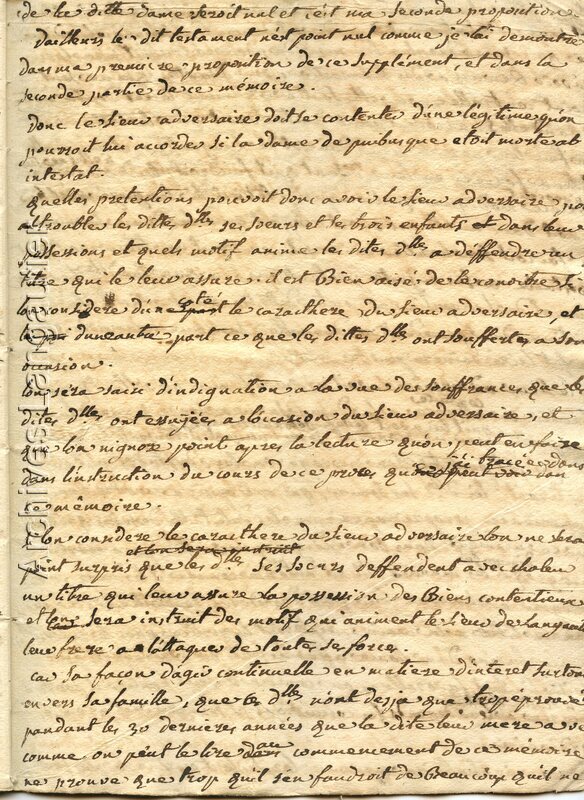 de la ditte dame seroit nul et c'est ma seconde proposition
Dailleurs le dit testament n'est point nul comme je lai demontré
dans ma premiere proposition de ce supplément, et dans la
seconde partie de ce mémoire.
Donc le sieur adversaire doit se contenter d'une légitime qu'on
pourroit lui accorder si la dame de puibusque etoit morte ab
intestat.
Quelles pretentions pouvoit donc avoir le sieur adversaire pour
troubler les dittes dlles ses soeurs et ses trois enfants dans leurs
possessions et quels motif anime les dites dlles a deffendre un
titre qui le leur assure. il est Bien aisé de le conoitre si
lon considere d'une coté le caracthere du sieur adversaire, et
d'une autre part ce que les dittes dlles ont souffertes a son
occasion.
Lon sera saisi d'indignation a la vue des souffrances que les
dites dlles ont essuyées a loccasion du sieur adversaire, et
que lon nignore point apres la lecture quon peut en faire
dans linstruction du cours de ce proces ici tracé dans
ce mémoire.
Si lon considere le caracthere du sieur adversaire lon ne sera
point surpris que les dlles ses soeurs deffendent avec chaleur
un titre qui leur assure la possession des Biens contentieux
et lon sera instruit des motif qui animent le sieur de
leur frere a l'attaquer de toutes ses forces.
Car sa façon d'agir continuelle en matiere d'interet surtout
envers sa famille, que ces dlles n'ont desja que trop éprouvé
pandant les 30 dernieres années que la dite leur mere a
comme on peut le lire au commencement de ce mémoire
ne prouve que trop quil sen faudroit de Beaucoup quil ne
Archives